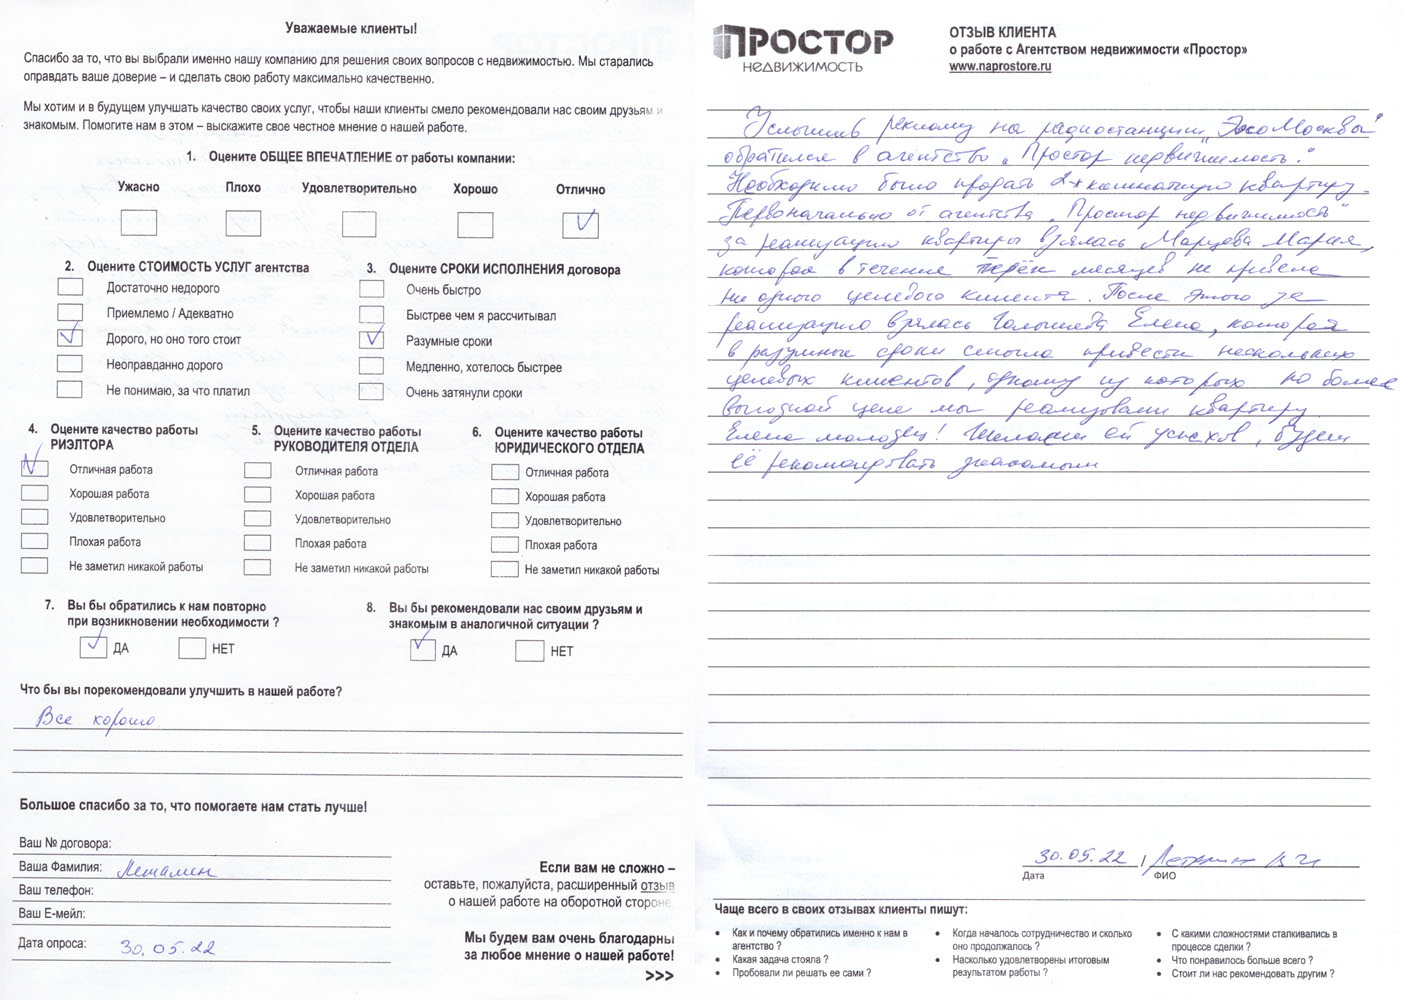 Уважаемые клиенты!
Спасибо за то, что вы выбрали именно нашу компанию для решения своих вопросов с недвижимостью. Мы старались
оправдать ваше доверие – и сделать свою работу максимально качественно.
Мы хотим и в будущем улучшать качество своих услуг, чтобы наши клиенты смело рекомендовали нас своим друзьям и
знакомым. Помогите нам в этом – выскажите свое честное мнение о нашей работе.
1. Оцените ОБЩЕЕ ВПЕЧАТЛЕНИЕ от работы компании:
Ужасно Плохо Удовлетворительно Хорошо Отлично
2. Оцените СТОИМОСТЬ УСЛУГ агентства
Достаточно недорого
Приемлемо / Адекватно
Дорого, но оно того стоит
Неоправданно дорого
Не понимаю, за что платил
3. Оцените СРОКИ ИСПОЛНЕНИЯ договора
Очень быстро
Быстрее чем я рассчитывал
Разумные сроки
Медленно, хотелось быстрее
Очень затянули сроки
4. Оцените качество работы
РИЭЛТОРА
Отличная работа
Хорошая работа
Удовлетворительно
Плохая работа
Не заметил никакой работы
5. Оцените качество работы
РУКОВОДИТЕЛЯ ОТДЕЛА
Отличная работа
Хорошая работа
Удовлетворительно
Плохая работа
Не заметил никакой работы
6. Оцените качество работы
ЮРИДИЧЕСКОГО ОТДЕЛА
Отличная работа
Хорошая работа
Удовлетворительно
Плохая работа
Не заметил никакой работы
7. Вы бы обратились к нам повторно
при возникновении необходимости ?
ДА НЕТ
8. Вы бы рекомендовали нас своим друзьям и
знакомым в аналогичной ситуации ?
ДА НЕТ
Что бы вы порекомендовали улучшить в нашей работе?
Все хорошо
Большое спасибо за то, что помогаете нам стать лучше!
Ваш № договора:
Ваша Фамилия:
Ваш телефон:
Ваш Е-мейл:
Дата опроса: 30.05.22
Если вам не сложно –
оставьте, пожалуйста, расширенный отзыв
о нашей работе на оборотной стороне.
Мы будем вам очень благодарны
за любое мнение о нашей работе!
>>>
ПРОСТОР
НЕДВИЖИМОСТЬ
ОТЗЫВ КЛИЕНТА
о работе с Агентством недвижимости «Простор»
www.naprostore.ru
Услышив рекламу на радиостанции „Эхо Москвы"
обратился в агентство „Простор недвижимость."
Необходимо было продать 2-х комнатную квартиру.
Первоначально от агентства „Простор недвижимость"
за реализацию квартиры взялась Марцева Мария,
которая в течение трёх месяцев не привела
ни одного целевого клиента. После этого за
реализацию взялась Елена, которая
в разумные сроки смогла привести несколько
целевых клиентов, одному из которых по более
выгодной цене мы реализовали квартиру.
Елена молодец! Желаем ей успехов, будем
её рекомендовать знакомым
30.05.22 /
Дата ФИО
Чаще всего в своих отзывах клиенты пишут:
• Как и почему обратились именно к нам в
агентство ?
• Какая задача стояла ?
• Пробовали ли решать ее сами ?
• Когда началось сотрудничество и сколько
оно продолжалось ?
• Насколько удовлетворены итоговым
результатом работы ?
• С какими сложностями сталкивались в
процессе сделки ?
• Что понравилось больше всего ?
• Стоит ли нас рекомендовать другим ?